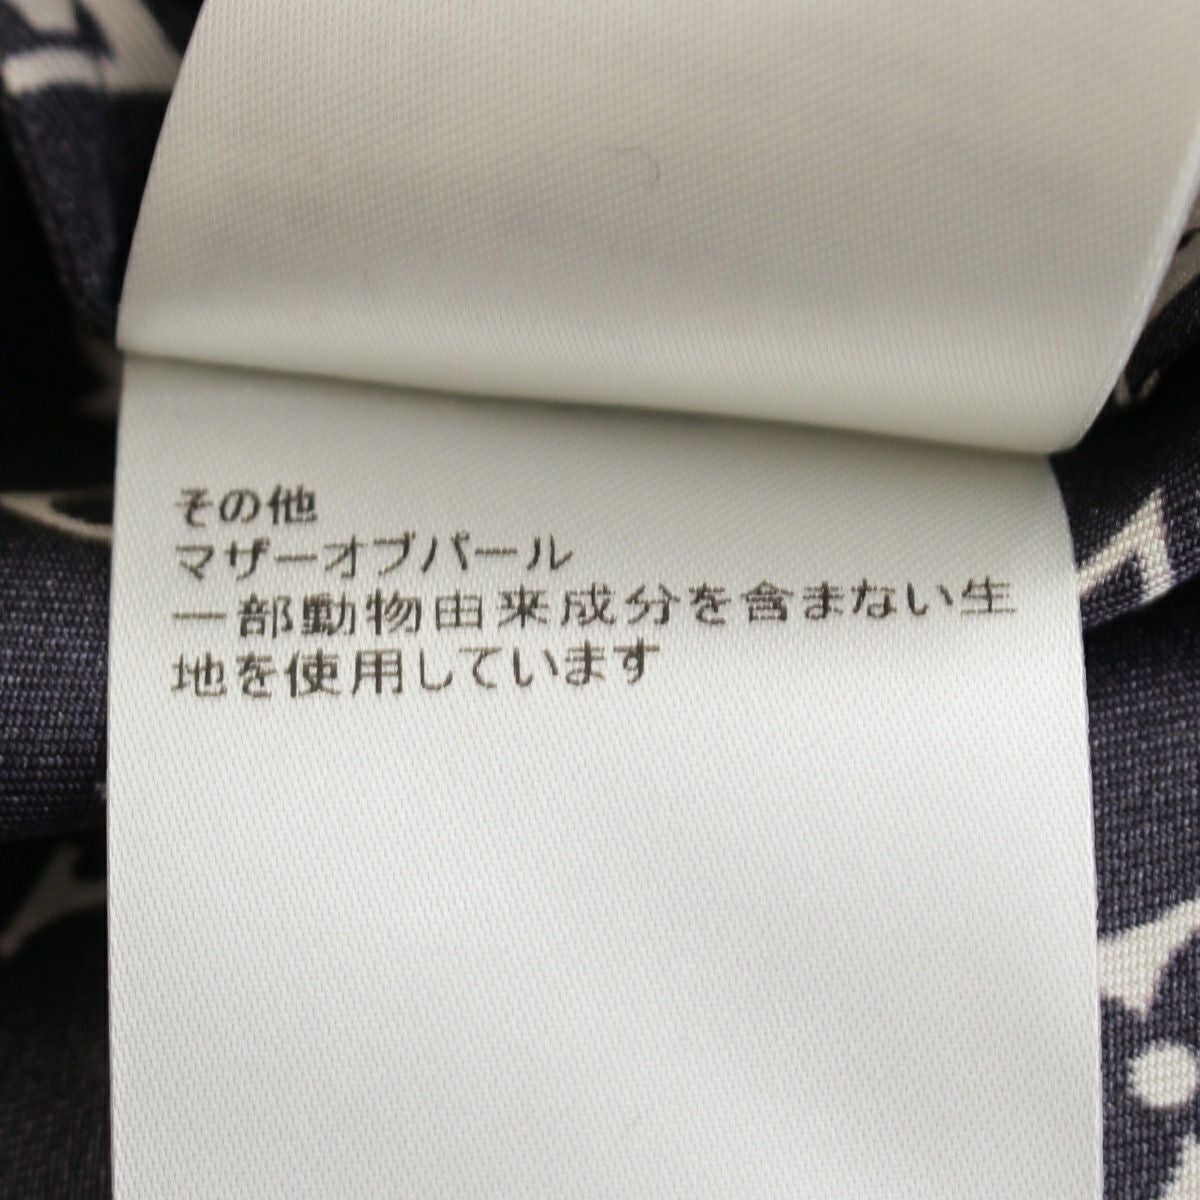 その他
マザーオブパール
一部動物由来成分を含まない生
地を使用しています